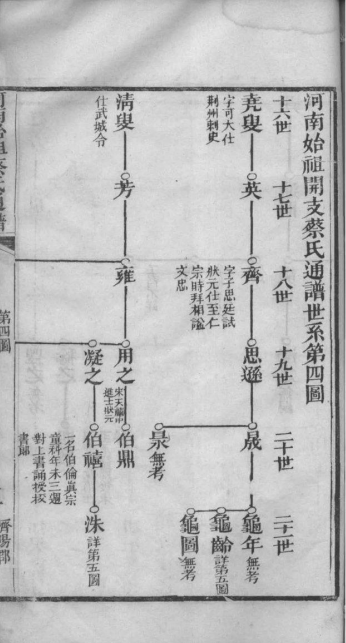 河南始祖開支蔡氏通譜世系第四圖
十六世
十七世
十八世
十九世
二十世
二十一世
堯叟
字可大仕
荆州刺史
英
齊
字子思廷試
狀元仕至仁
宗時拜相謚
文忠
思遜
晟
㬌無考
龜年無考
龜齡詳第五圖
龜圖無考
清叟
仕武城令
芳
雍
用之
宋天禧中
進士狀元
伯鼎
凝之
伯禧
一名伯倫真宗
童科年未三週
對上書誦授校
書郎
洙詳第五圖
第四圖
濟陽郡